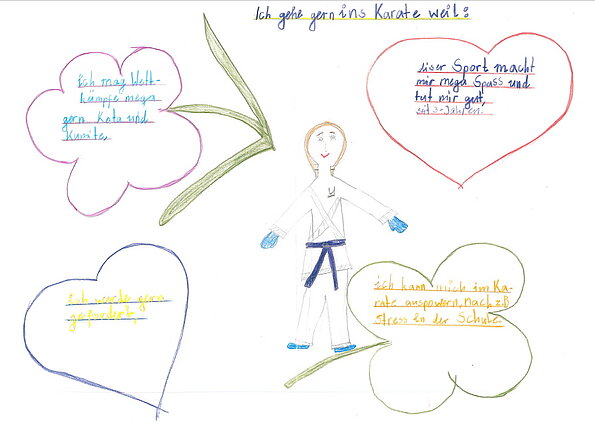 Ich gehe gern ins Karate weil:
ich mag Wett-
kämpfe mega
gern Kata und
Kumite,
diser Sport macht
mir mega Spass und
tut mir gut,
seit 3-Jahren!
ich werde gern
gefordert,
ich kann mich im Ka-
rate auspowern, nach z.B
Stress in der Schule